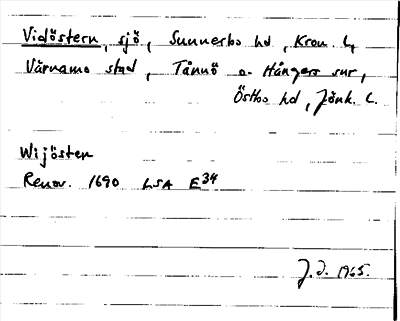 Vidöstern, sjö, Sunnerbo hd, Kron. l,
Värnamo stad, Tånnö o. Hångers snr,
Östbo hd, Jönk. l.
Wijösten
Renov. 1690 LSA E34
J. J. 1965.